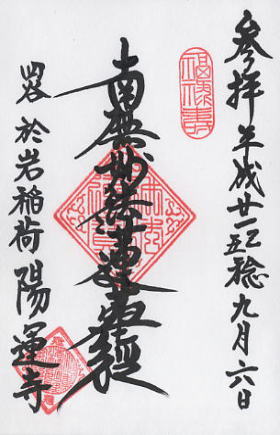 參拝 平成廿一己丑稔九月六日
南無妙法蓮華經
四谷 於岩稲荷 陽運寺